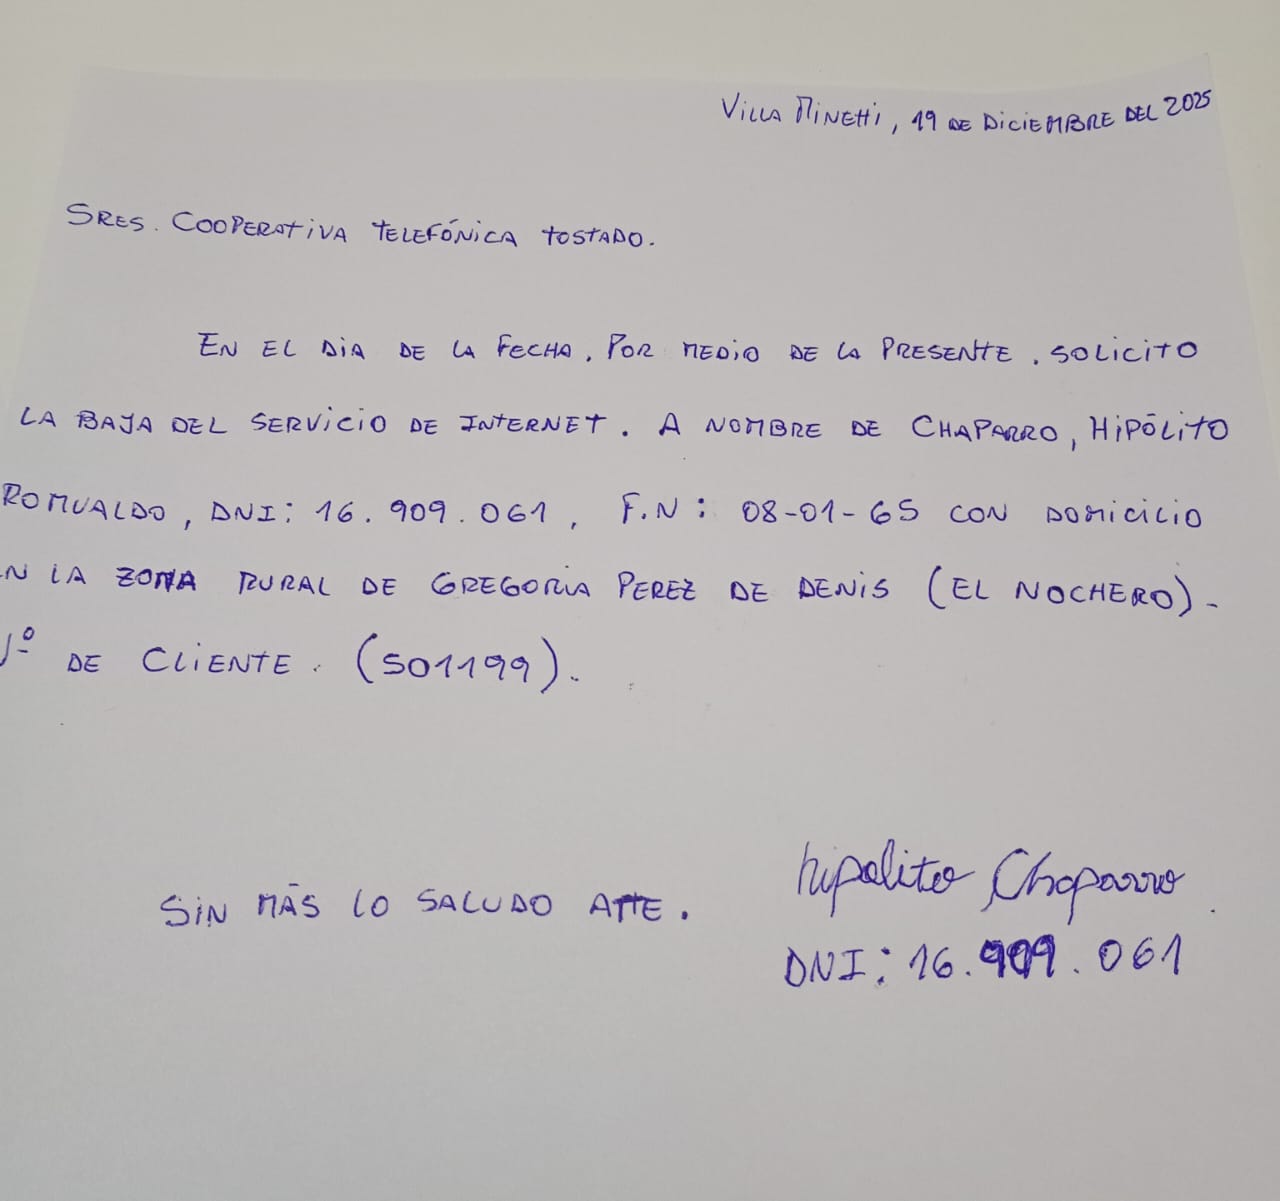 Villa Minetti, 19 de Diciembre del 2025
Sres. Cooperativa Telefónica Tostado.
En el dia de la fecha, por medio de la presente, solicito
la baja del servicio de Internet. A nombre de Chaparro, Hipólito
Romualdo, DNI: 16.909.061, F.N: 08-01-65 con domicilio
n la zona rural de Gregoria Perez de Denis (El Nochero)-
Nº de Cliente. (501199).
Sin más lo saludo atte.
hipolito Chaparro
DNI: 16.909.061